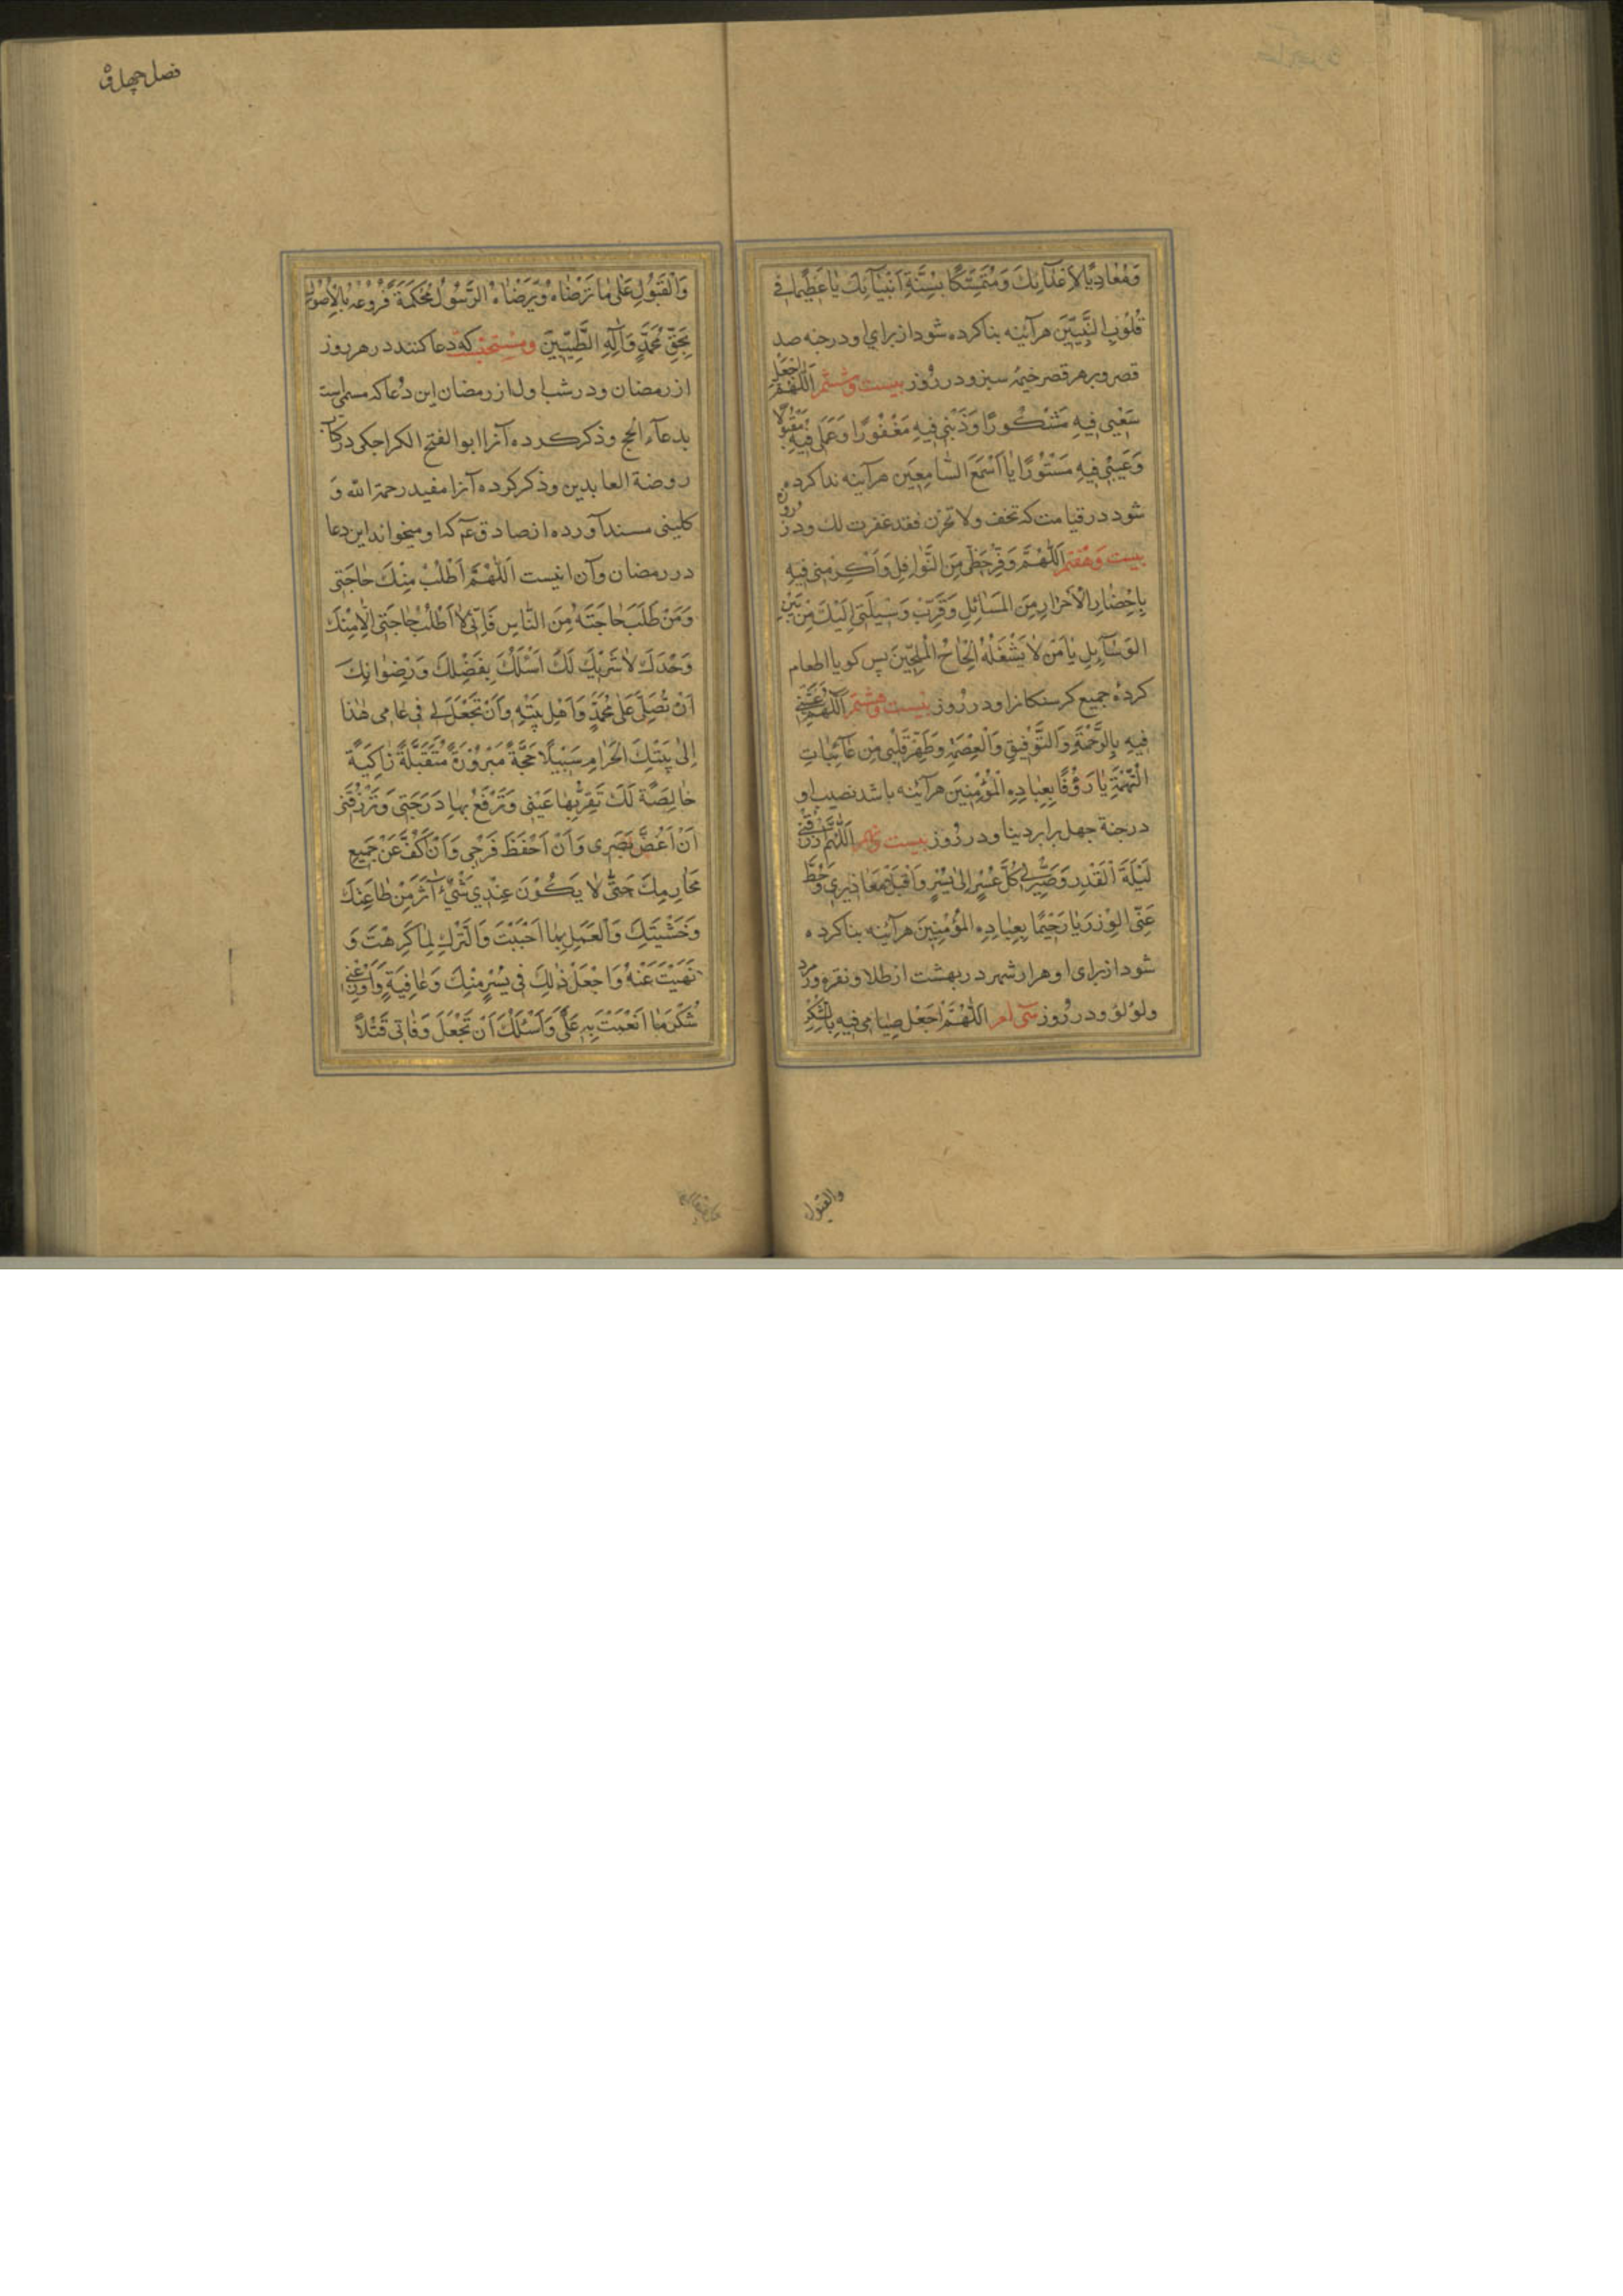 وَمُعَادِيًا لِأَعْدَآئِكَ وَمُتَمَسِّكًا بِسُنَّةِ اَنْبِيَآئِكَ يَا عَظِيْمًا فِي
قُلُوْبِ النَّبِيِّيْنَ هرآئينه بنا کرده شود از براي او در جنه صد
قصر و بر هر قصر خيمهٔ سبز و در روز بيست وششم اَللّٰهُمَّ اجْعَلْ
سَعْيِي فِيْهِ مَشْكُوْرًا وَذَنْبِي فِيْهِ مَغْفُوْرًا وَعَمَلِي فِيْهِ مَقْبُوْلًا
وَعَيْبِي فِيْهِ مَسْتُوْرًا يَا اَسْمَعَ السَّامِعِيْنَ هرآينه ندا کرده
شود در قيامت که تخف ولا تحزن فقد غفرت لك و در روز
بيست وهفتم اَللّٰهُمَّ وَفِّرْ حَظِّي مِنَ النَّوَافِلِ وَاَكْرِمْنِي فِيْهِ
بِاِحْضَارِ الْاَحْرَارِ مِنَ الْمَسَائِلِ وَقَرِّبْ وَسِيْلَتِي اِلَيْكَ مِنْ بَيْنِ
الوَسَآئِلِ يَا مَنْ لَا يَشْغَلُهُ اِلْحَاحُ الْمُلِحِّيْنَ پس کويا اطعام
کرده جميع کرسنکانرا و در روز بيست وهشتم اَللّٰهُمَّ غَشِّنِي
فِيْهِ بِالرَّحْمَةِ وَالتَّوْفِيْقِ وَالْعِصْمَةِ وَطَهِّرْ قَلْبِي مِنْ عَآئِبَاتِ
التُّهْمَةِ يَا رَؤُفًا بِعِبَادِهِ الْمُؤْمِنِيْنَ هرآئينه باشد نصيب او
در جنة چهل برابر دينا و در روز بيست ونهم اَللّٰهُمَّ ارْزُقْنِي
لَيْلَةَ الْقَدْرِ وَصَيِّرْ لِي كُلَّ عُسْرٍ اِلَى يُسْرٍ وَاقْبَلْ مَعَاذِيْرِي وَحُطَّ
عَنِّي الْوِزْرَ يَا رَحِيْمًا بِعِبَادِهِ الْمُؤْمِنِيْنَ هرآئينه بنا کرده
شود از براى او هزار شهر در بهشت از طلا و نقره وزمرد
ولؤلؤ و در روز سى ام اَللّٰهُمَّ اجْعَلْ صِيَامِي فِيْهِ بِالشُّكْرِ
والقبول
فصل چهل و
وَالْقَبُوْلِ عَلَى مَا تَرْضَاهُ وَيَرْضَاهُ الرَّسُوْلُ مُحْكَمَةً فُرُوْعُهُ بِالْاُصُوْلِ
بِحَقِّ مُحَمَّدٍ وَآلِهِ الطَّيِّبِيْنَ ومستحبست که دعا کنند در هر روز
از رمضان و در شب اول از رمضان اين دعا که مسمى است
بدعآء الحج وذکر کرده آنرا ابو الفتح الکراجکى در کتاب
روضة العابدين وذکر کرده آنرا مفيد رحمة الله و
کلينى مسندا آورده از صادق عم که او ميخواند اين دعا
در رمضان وآن اينست اَللّٰهُمَّ اَطْلُبُ مِنْكَ حَاجَتِي
وَمَنْ طَلَبَ حَاجَتَهُ مِنَ النَّاسِ فَاِنِّي لَا اَطْلُبُ حَاجَتِي اِلَّا مِنْكَ
وَحْدَكَ لَا شَرِيْكَ لَكَ اَسْئَلُكَ بِفَضْلِكَ وَرِضْوَانِكَ
اَنْ تُصَلِّيَ عَلَى مُحَمَّدٍ وَاَهْلِ بَيْتِهِ وَاَنْ تَجْعَلَ لِي فِي عَامِي هٰذَا
اِلَى بَيْتِكَ الْحَرَامِ سَبِيْلًا حَجَّةً مَبْرُوْرَةً مُتَقَبَّلَةً زَاكِيَةً
خَالِصَةً لَكَ تَقِرُّ بِهَا عَيْنِي وَتَرْفَعُ بِهَا دَرَجَتِي وَتَرْزُقَنِي
اَنْ اَغُضَّ بَصَرِي وَاَنْ اَحْفَظَ فَرْجِي وَاَنْ اَكُفَّ عَنْ جَمِيْعِ
مَحَارِمِكَ حَتَّى لَا يَكُوْنَ عِنْدِي شَيْءٌ آثَرَ مِنْ طَاعَتِكَ
وَخَشْيَتِكَ وَالْعَمَلِ بِمَا اَحْبَبْتَ وَالتَّرْكِ لِمَا كَرِهْتَ وَ
نَهَيْتَ عَنْهُ وَاجْعَلْ ذٰلِكَ فِي يُسْرٍ مِنْكَ وَعَافِيَةٍ وَاَوْزِعْنِي
شُكْرَ مَا اَنْعَمْتَ بِهِ عَلَيَّ وَاَسْئَلُكَ اَنْ تَجْعَلَ وَفَاتِي قَتْلًا